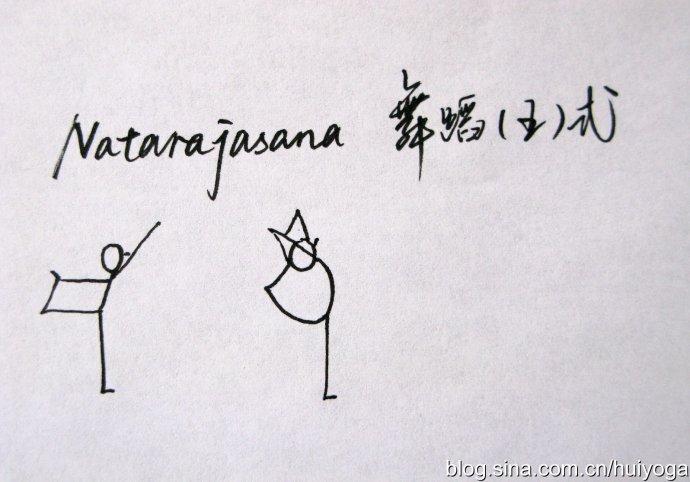 Natarajasana 舞蹈(王)式
blog.sina.com.cn/huiyoga